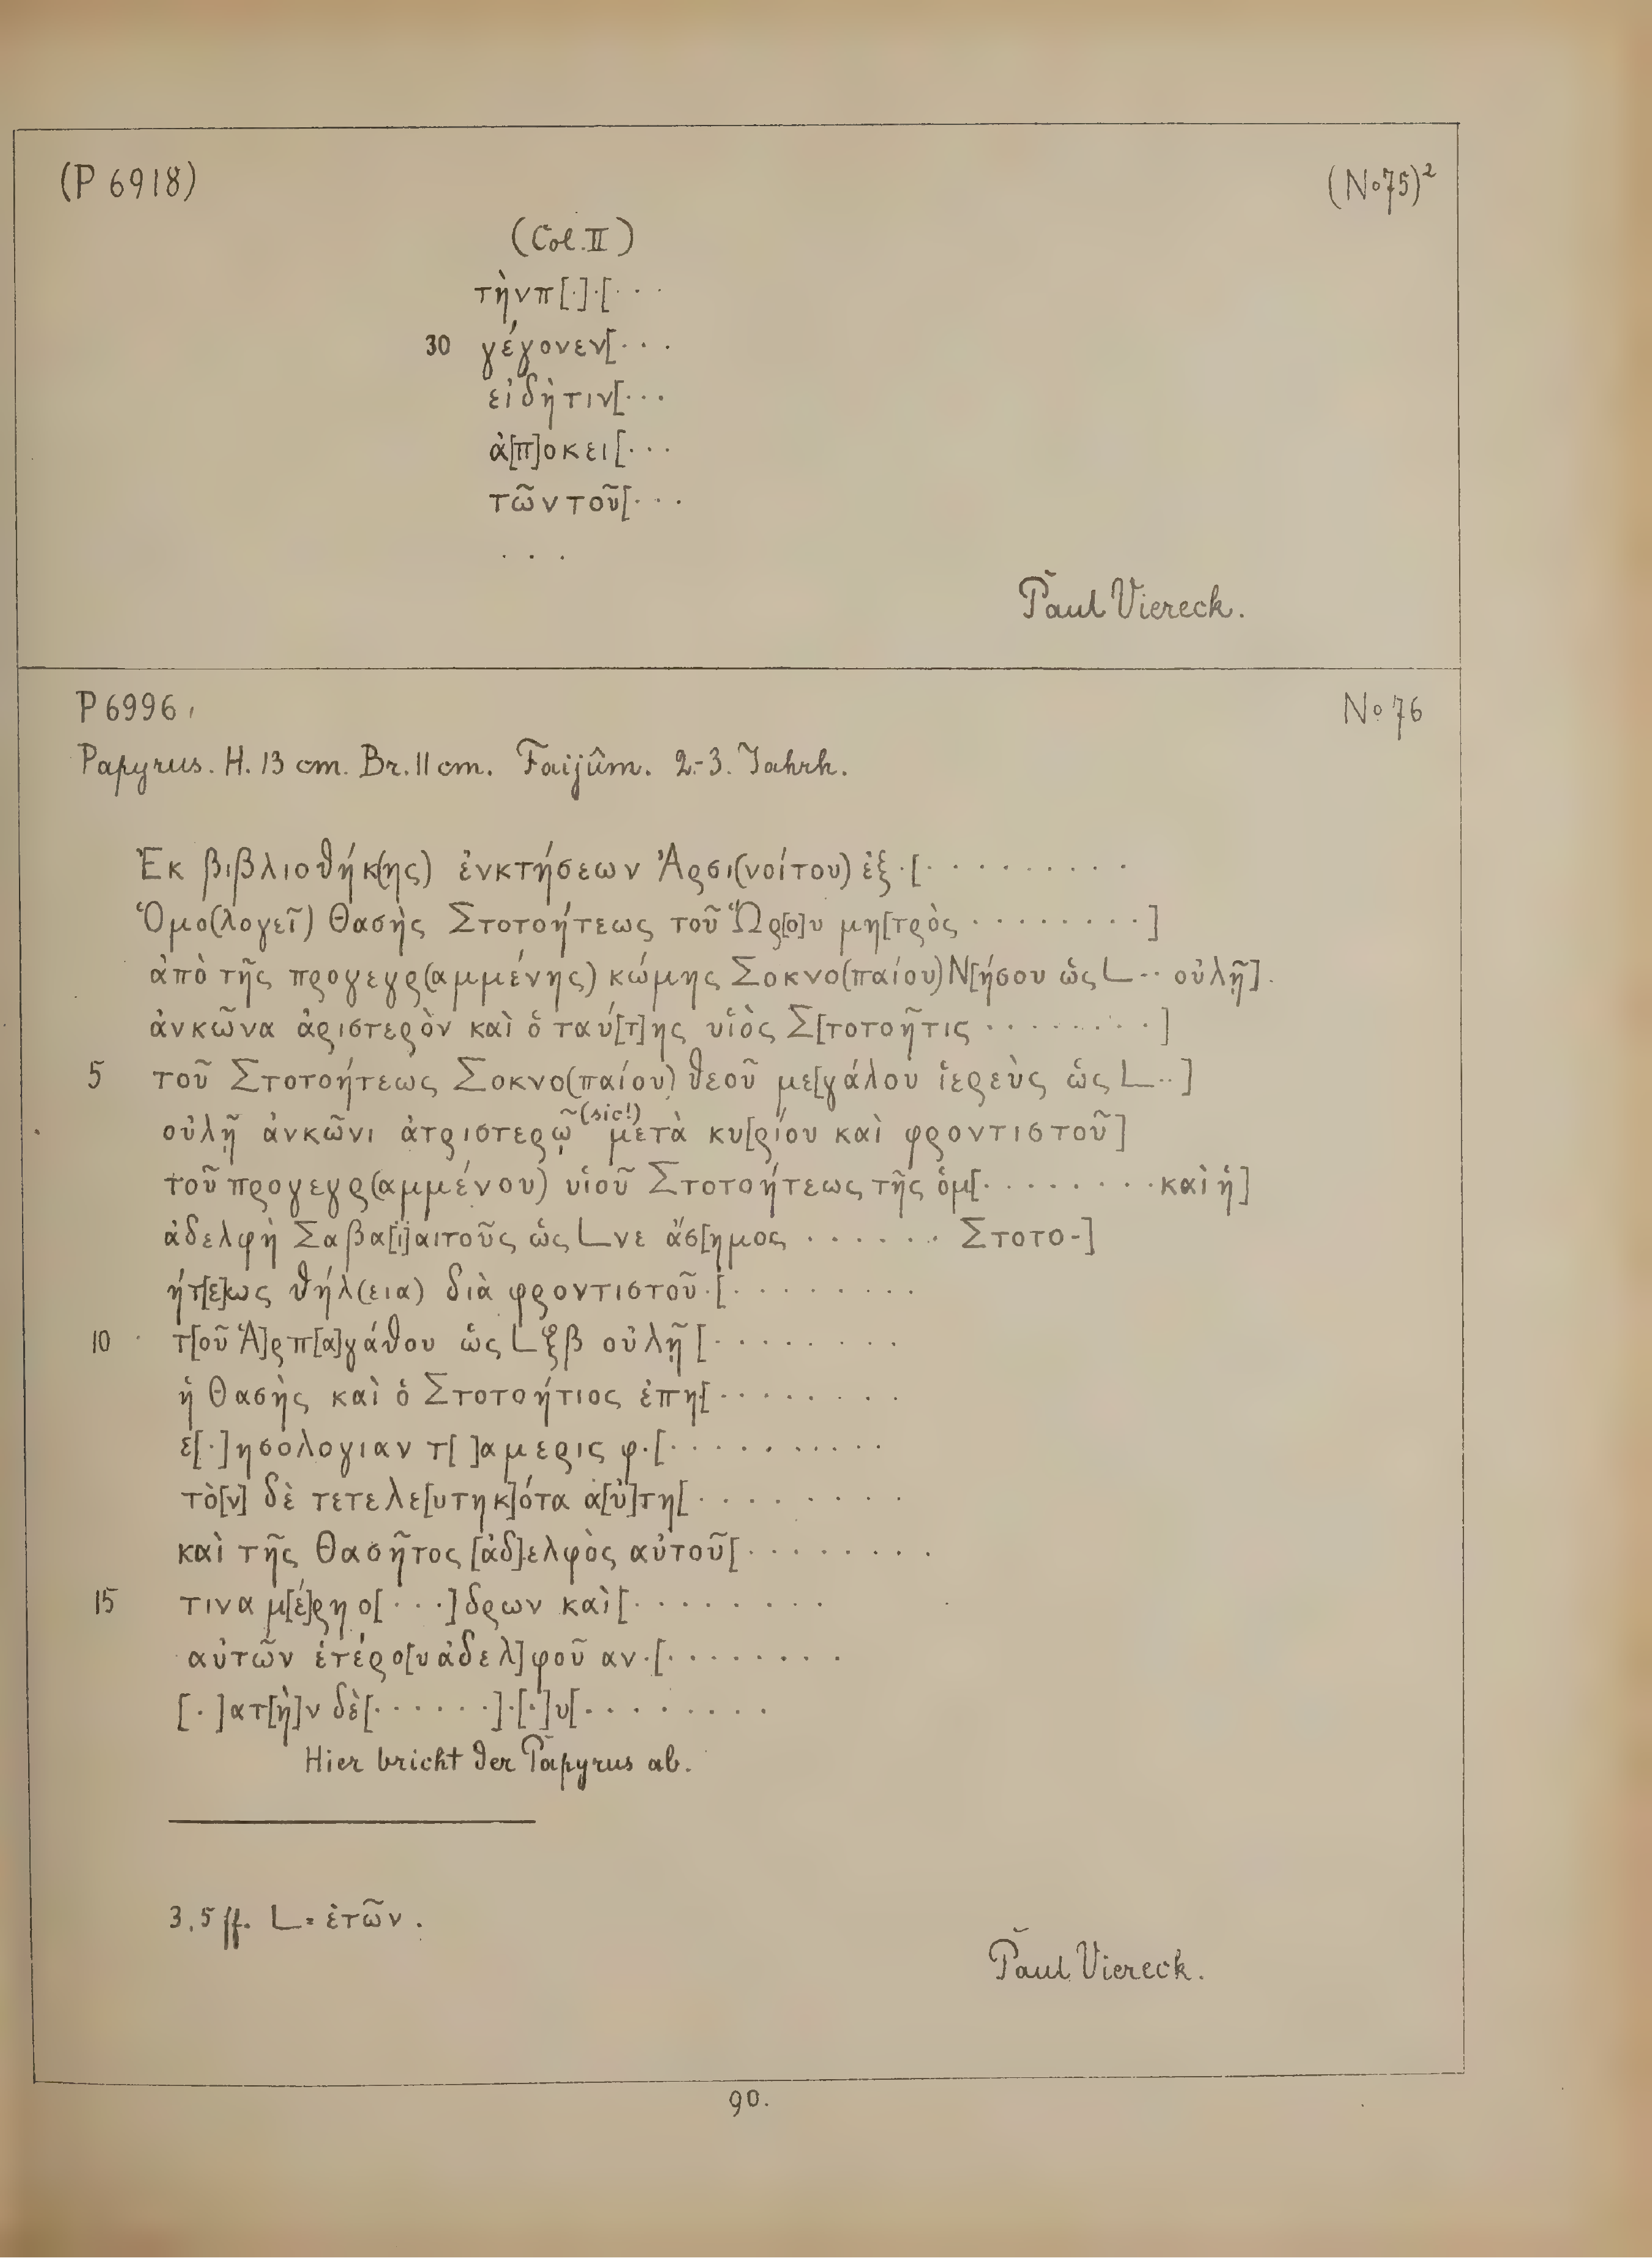 (P 6918) (No 75)²
(Col. II)
τὴνπ[·]·[· · ·
30 γέγονεν[· · ·
εἰδήτιν[· · ·
ἀ[π]οκει[· · ·
τῶν τοῦ[· · ·
· · ·
Paul Viereck.
P 6996. No 76
Papyrus. H. 13 cm. Br. 11 cm. Faijûm. 2.-3. Jahrh.
Ἐκ βιβλιοθήκ(ης) ἐνκτήσεων Ἀρσι(νοίτου) ἐξ·[· · · · · · · · ·
Ὁμο(λογεῖ) Θασὴς Στοτοήτεως τοῦ Ὥρ[ο]υ μη[τρὸς · · · · · · · ·]
ἀπὸ τῆς προγεγρ(αμμένης) κώμης Σοκνο(παίου) Ν[ήσου ὡς L ·· οὐλῇ].
ἀνκῶνα ἀριστερὸν καὶ ὁ ταύ[τ]ης υἱὸς Σ[τοτοῆτις · · · · · · · ·]
5 τοῦ Στοτοήτεως Σοκνο(παίου) θεοῦ με[γάλου ἱερεὺς ὡς L ··]
οὐλῇ ἀνκῶνι ἀτριστερῷ (sic!) μετὰ κυ[ρίου καὶ φροντιστοῦ]
τοῦ προγεγρ(αμμένου) υἱοῦ Στοτοήτεως τῆς ὁμ[· · · · · · · · καὶ ἡ]
ἀδελφὴ Σαβα[ϊ]αιτοῦς ὡς L νε ἄσ[ημος · · · · · · Στοτο-]
ήτ[ε]ως θήλ(εια) διὰ φροντιστοῦ·[· · · · · · · ·
10 τ[οῦ Ἁ]ρπ[α]γάθου ὡς L ξβ οὐλῇ [· · · · · · · ·
ἡ Θασὴς καὶ ὁ Στοτοήτιος ἐπη[· · · · · · · ·
ε[·]ησολογιαν τ[ ]αμερις φ·[· · · · · · · · · ·
τὸ[ν] δὲ τετελε[υτηκ]ότα α[ὐ]τη[· · · · · · · ·
καὶ τῆς Θασῆτος [ἀδ]ελφὸς αὐτοῦ[· · · · · · · ·
15 τινα μ[έ]ρη ο[· · ·]δρων καὶ[· · · · · · · ·
αὐτῶν ἑτέρο[υ ἀδελ]φοῦ αν·[· · · · · · · ·
[·]ατ[ὴ]ν δὲ[· · · · · ·]·[·]υ[· · · · · · · ·
Hier bricht der Papyrus ab.
3.5 ff. L = ἐτῶν.
Paul Viereck.
90.